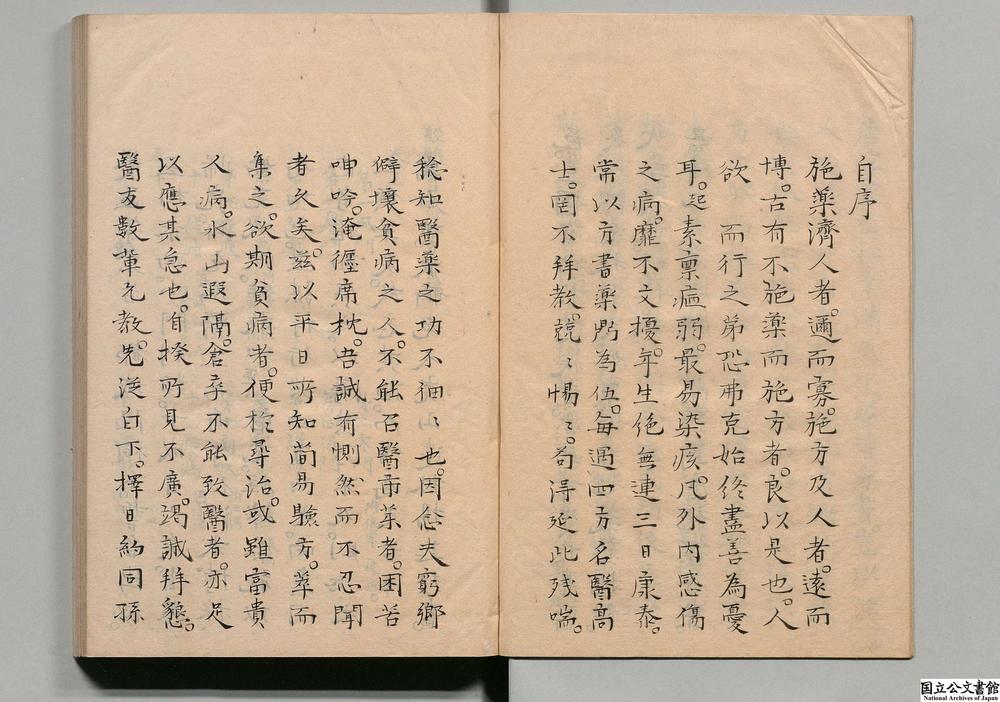 自序
施藥濟人者。邇而寡。施方及人者。遠而
博。古有不施藥而施方者。良以是也。人
欲　而行之第恐弗克始終盡善為憂
耳。起素禀尫弱。最易染疾。凡外内感傷
之病。靡不文擾。年生絶無連三日康泰。
常以方書藥㓛為伍。每遇四方名醫高
士。罔不拜教。兢〻惕〻。苟淂延此残喘。
稔知醫藥之功不細〻也。因念夫窮鄉
僻壤貧病之人。不能召醫市藥者。困苦
呻吟。淹纏席枕。吾誠有惻然而不忍聞
者久矣。兹以平日所知簡易驗方。萃而
集之。欲期貧病者。便於尋治。或雖富貴
人病。水山遐隔。倉卒不能致醫者。亦足
以應其急也。自揆所見不廣。竭誠拜懇。
醫友數輩乞教。先從白下。擇日約同孫
国立公文書館
National Archives of Japan